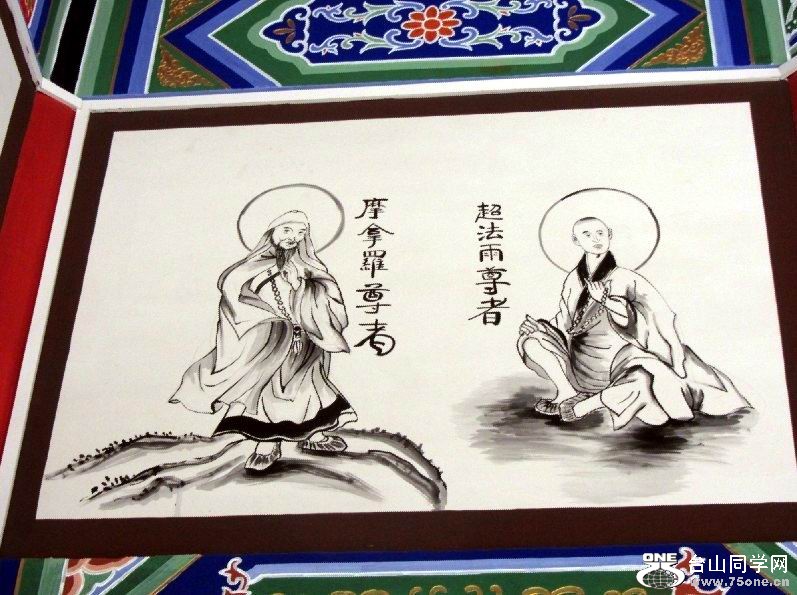 摩拿羅尊者
超法雨尊者
ONE 台山同学网
www.75one.cn